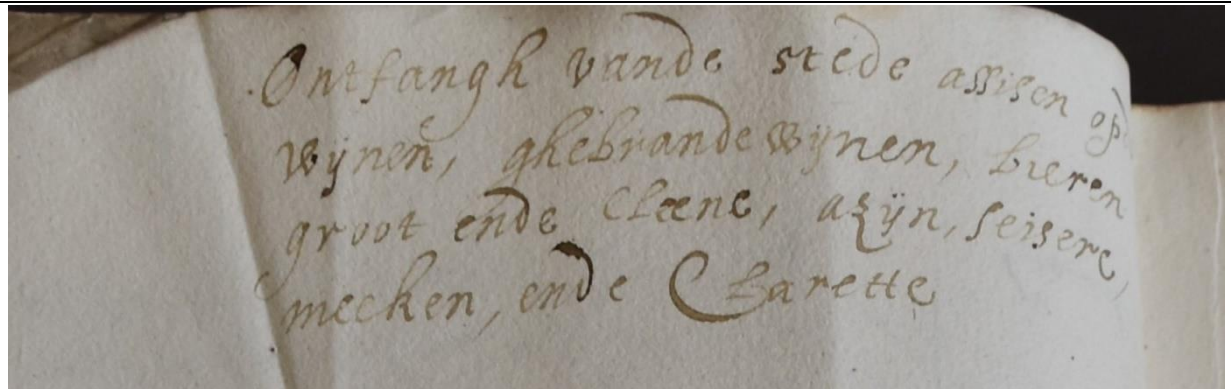 Ontfangh vande stede assisen op
wÿnen, ghebrande wÿnen, bieren
groot ende cleene, azÿn, seisere,
meeken, ende Clarette